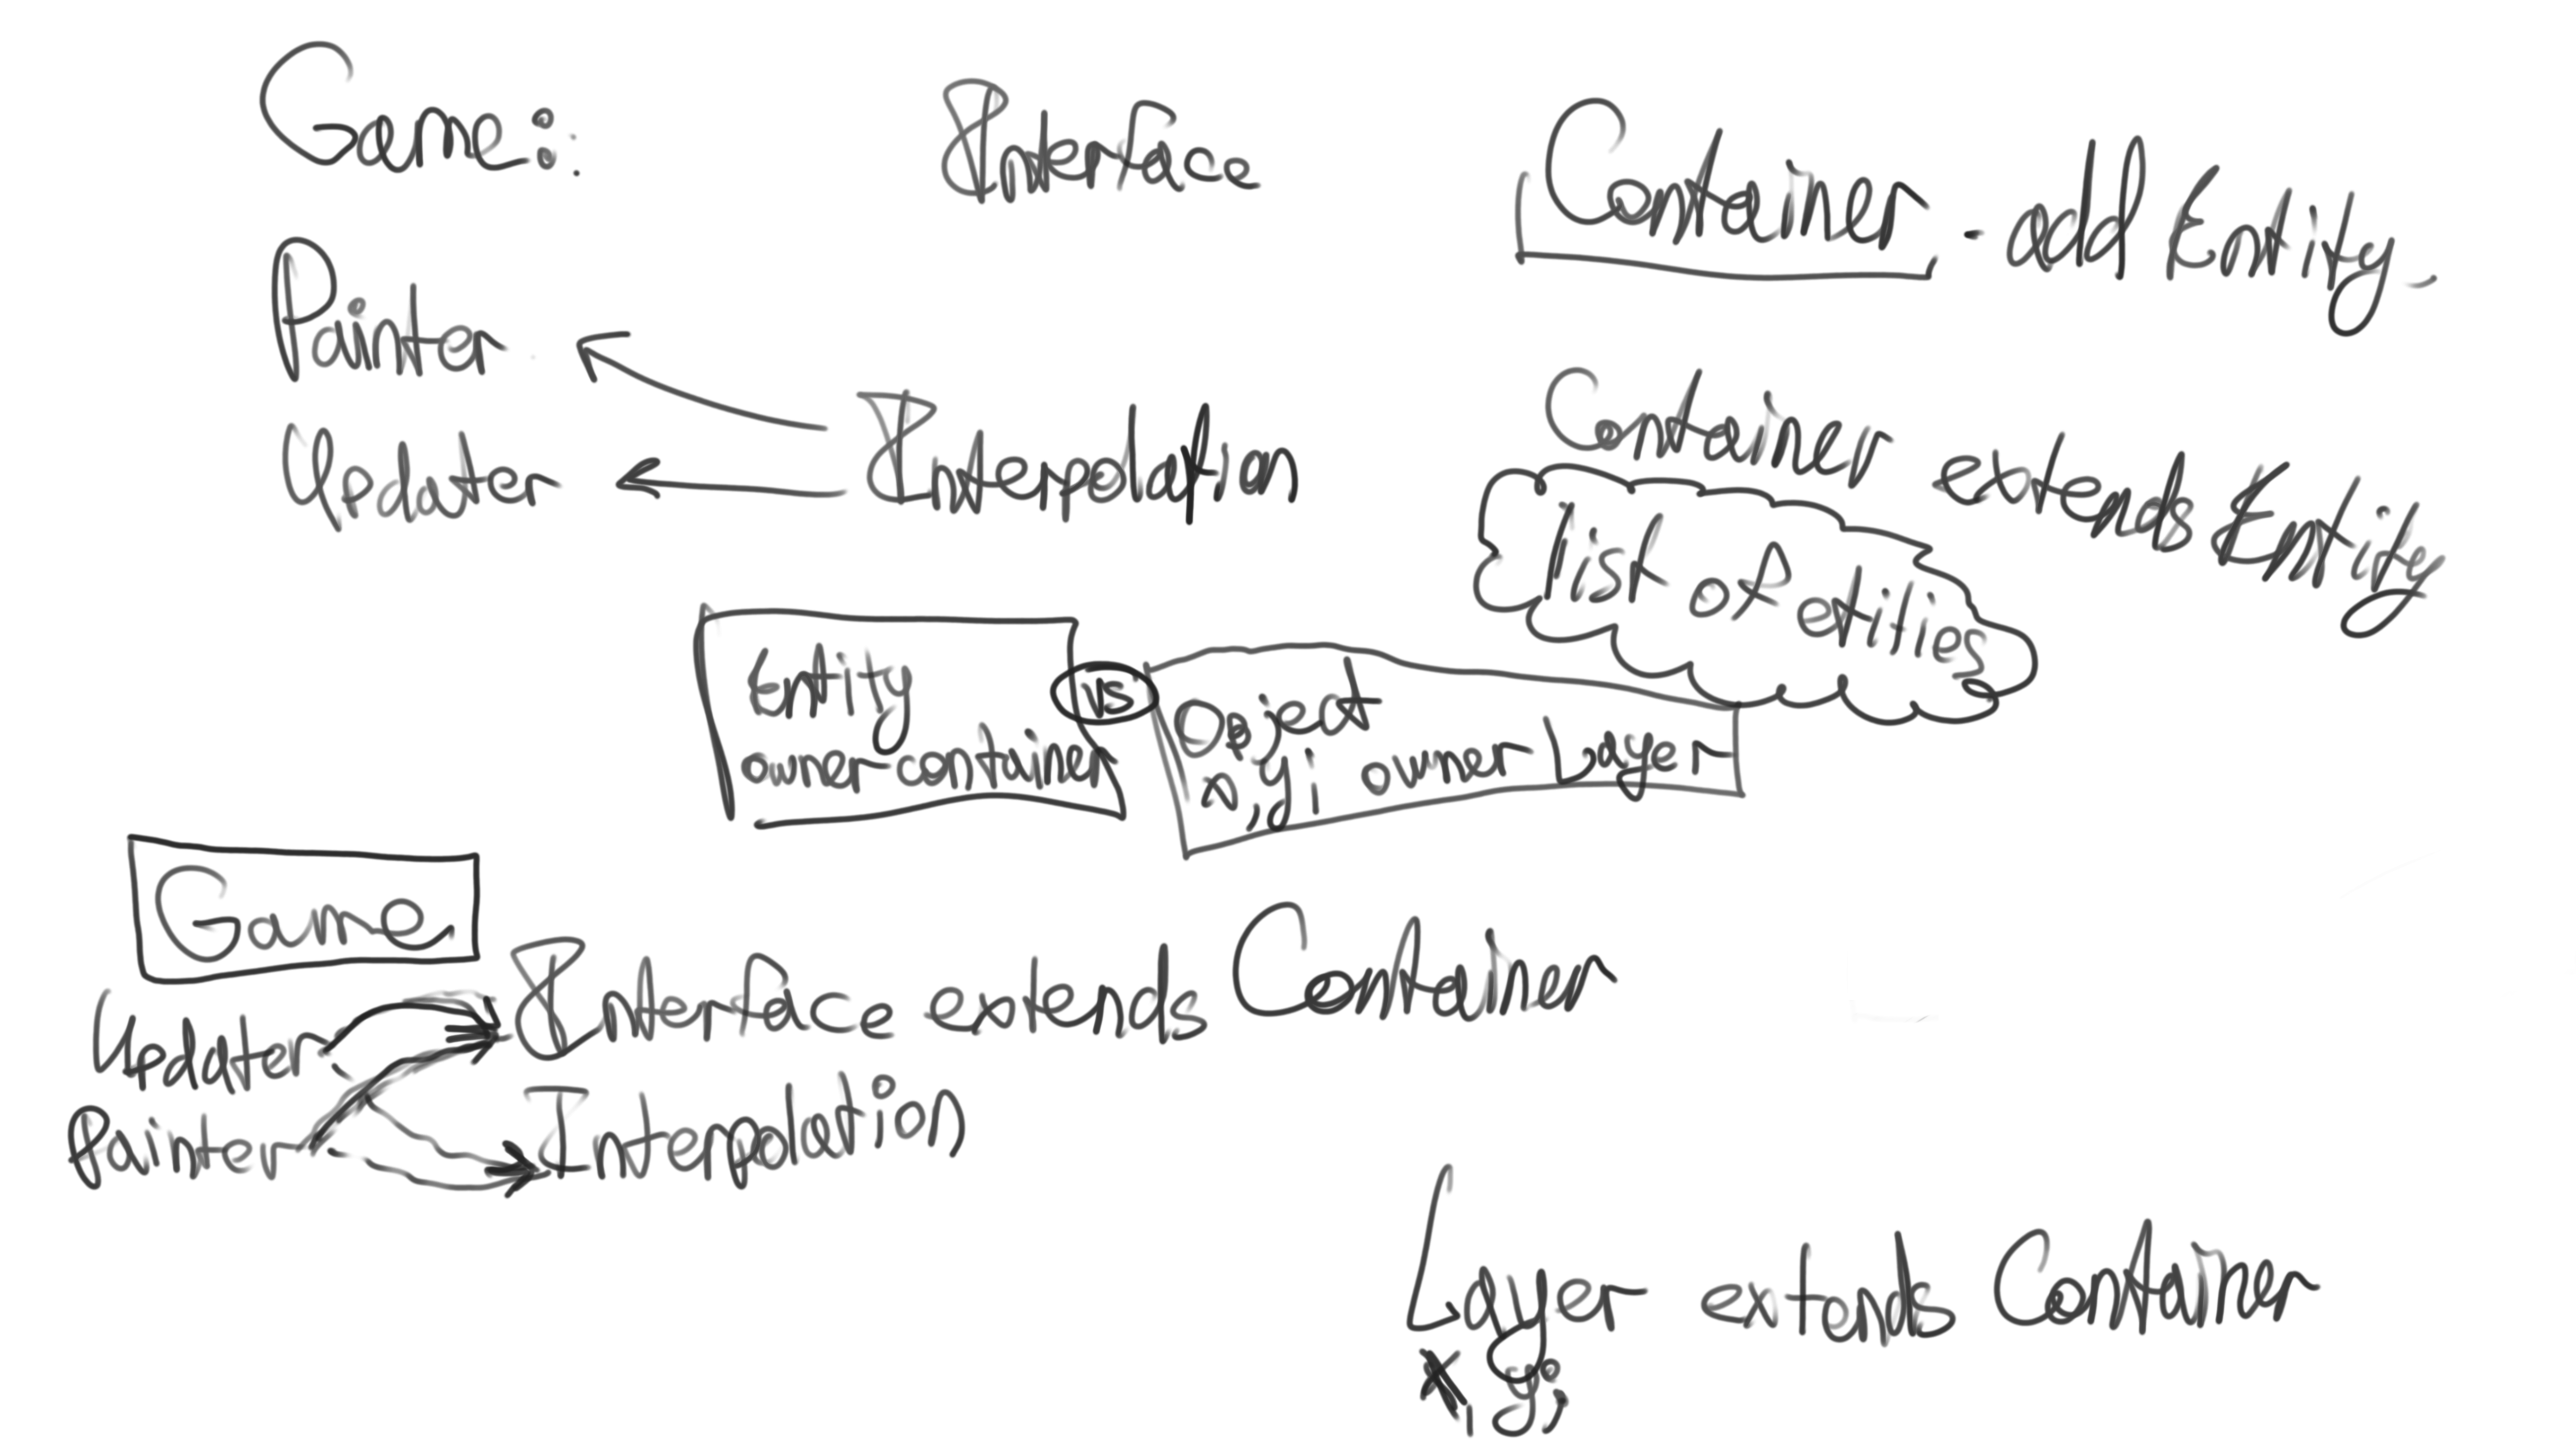 Game:
Interface
Container - add Entity
Painter
Updater
Interpolation
Container extends Entity
list of etities
Entity
owner-container
vs
Object
x,y; owner Layer
Game
Updater
Painter
Interface extends Container
Interpolation
Layer extends Container
x,y;